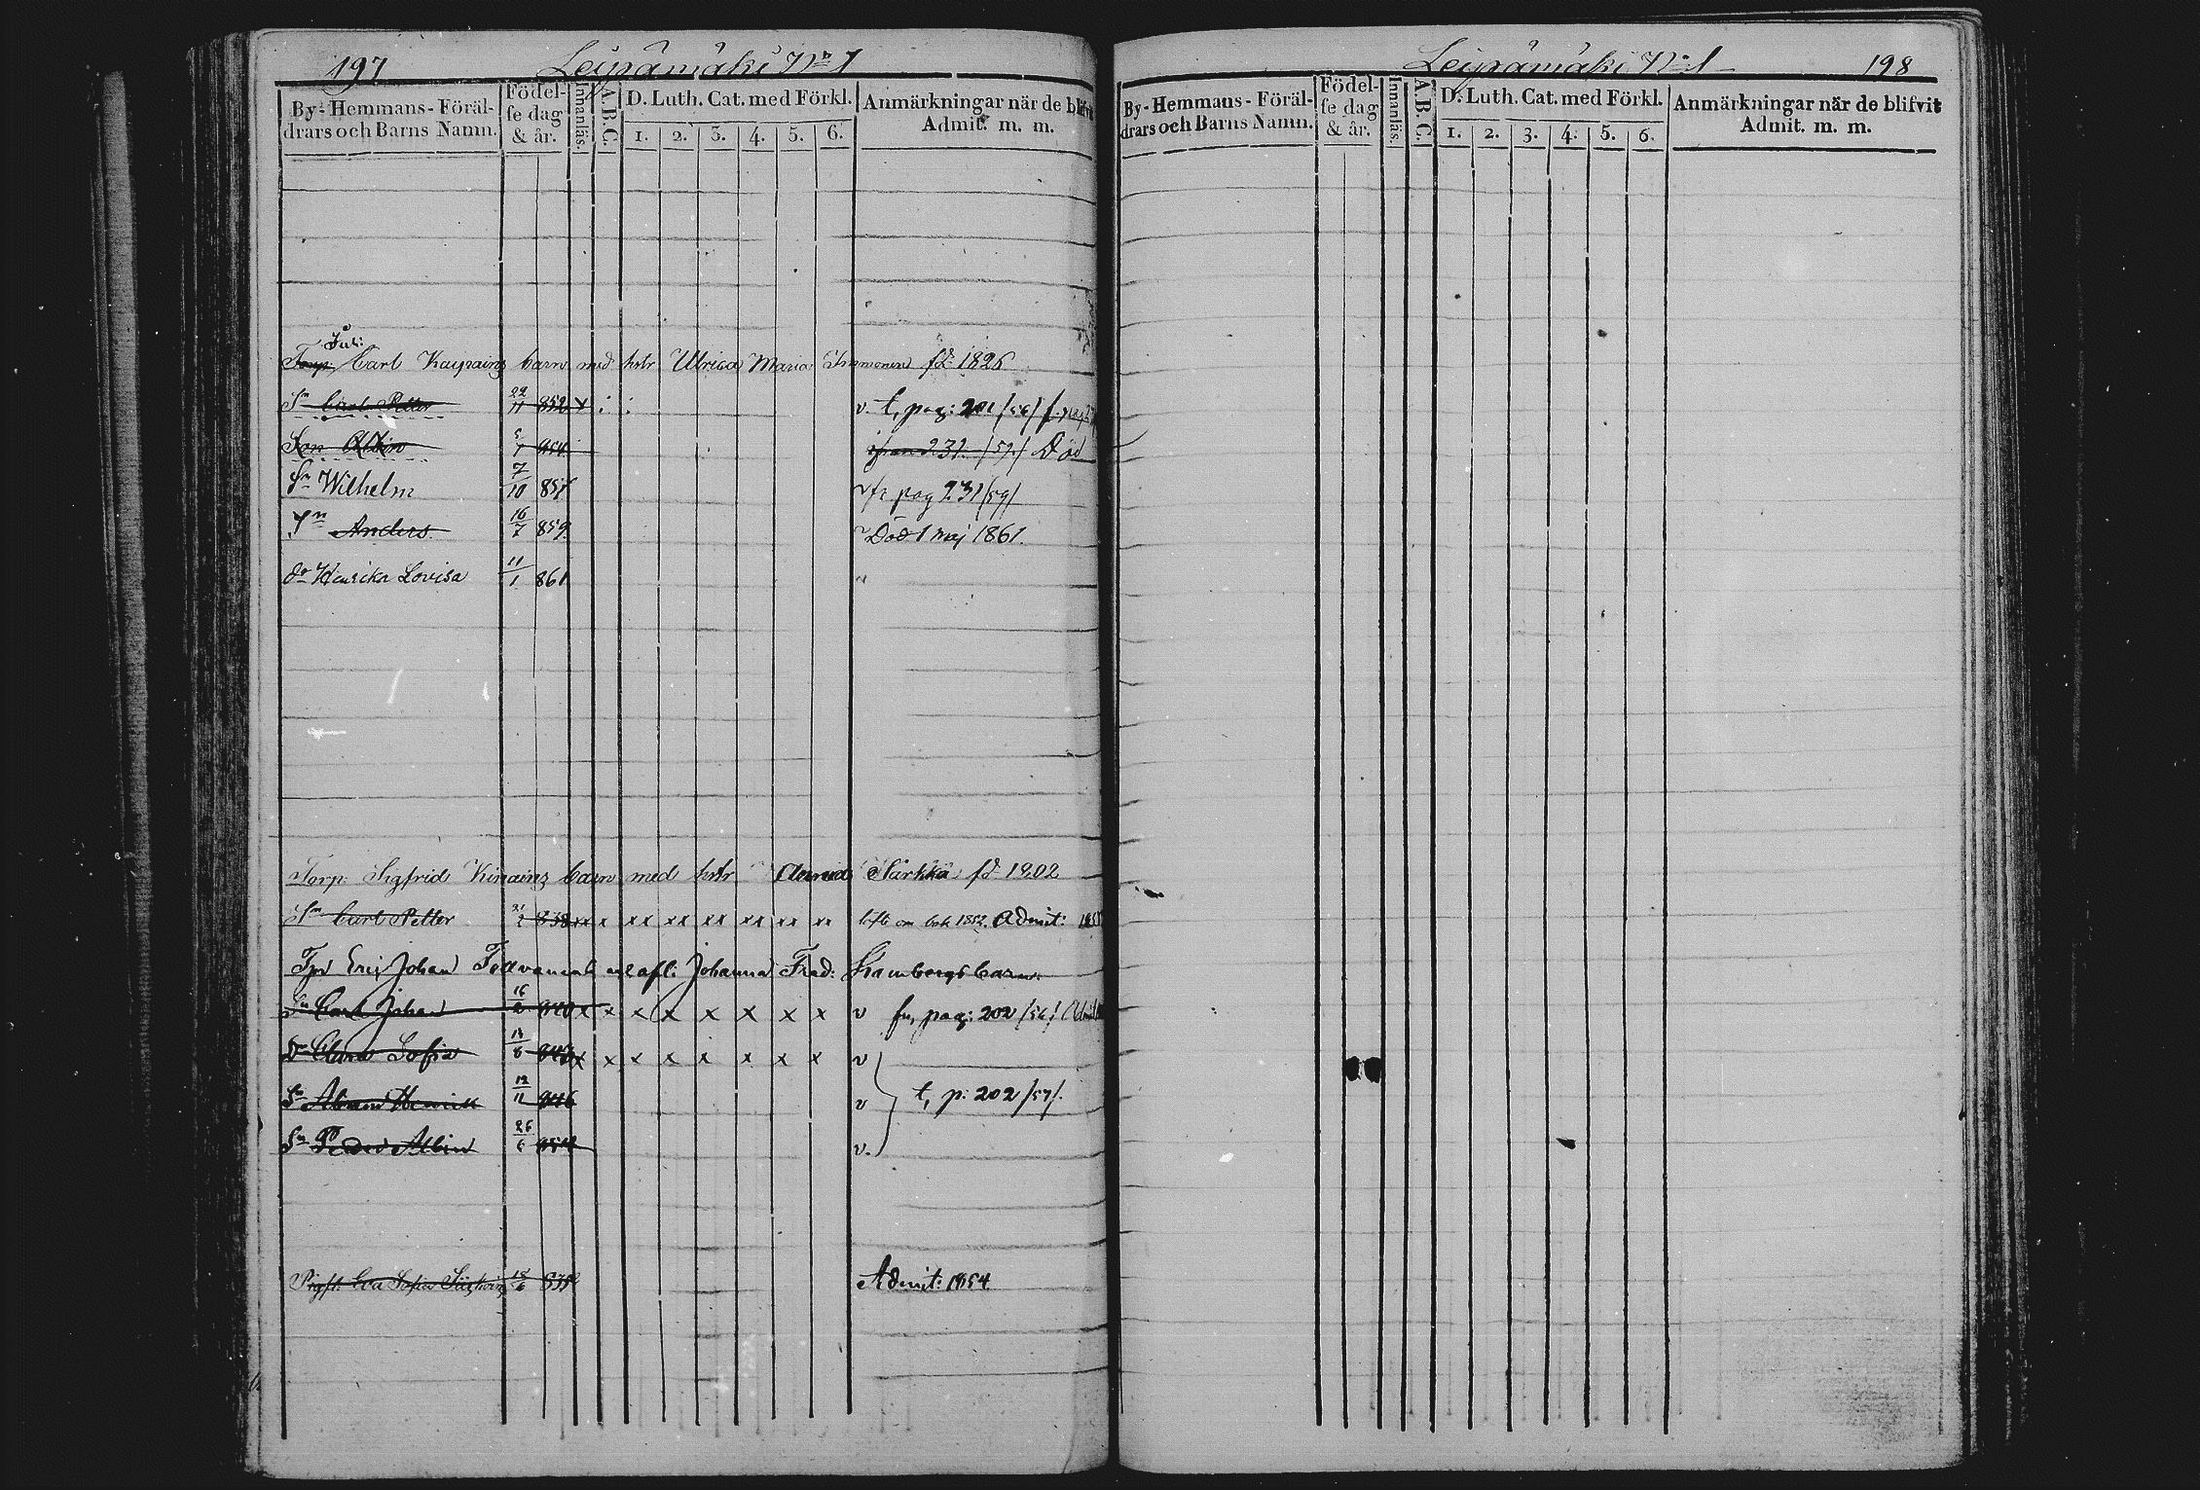 197 Leipämäki No 1
By- Hemmans- Föräldrars och Barns Namn.
Födelse dag & år.
Innanläs.
A.B.C.
D. Luth. Cat. med Förkl.
1. 2. 3. 4. 5. 6.
Anmärkningar när de blifvit Admit. m. m.
Torp. Inh: Carl Kaipainz barn med hstr Ulrica Maria Immonen fd 1826
Sn Carl Petter 22/11 852 x v. t, pag: 201/56/
Son Albin 5/7 854 231 /59/ Död
Sn Wilhelm 7/10 857 v fr pag 231/59/
Sn Anders 16/7 859 Död 1 maj 1861.
dr Henrika Lovisa 11/1 861 "
Torp. Sigfrid Kinainz barn med hstr Anna Särkkä fd 1802
Sn Carl Petter 838 xx x xx xx xx xx xx xx 1852. Admit:
Eric Johan Johanna Fred: barn.
Sn Carl Johan 16/2 840 x x x x x x x x v fr, pag: 202 /56/
Dr Clara Sofia 843 x x x x x x x x v
Sn Abram Henrik 12/11 846 v t, p: 202 /57/.
Sn Albin 26/6 v.
Pig: Eva Sofia Admit: 1854
Leipämäki No 1 198
By- Hemmans- Föräldrars och Barns Namn.
Födelse dag & år.
Innanläs.
A.B.C.
D. Luth. Cat. med Förkl.
1. 2. 3. 4. 5. 6.
Anmärkningar när de blifvit Admit. m. m.